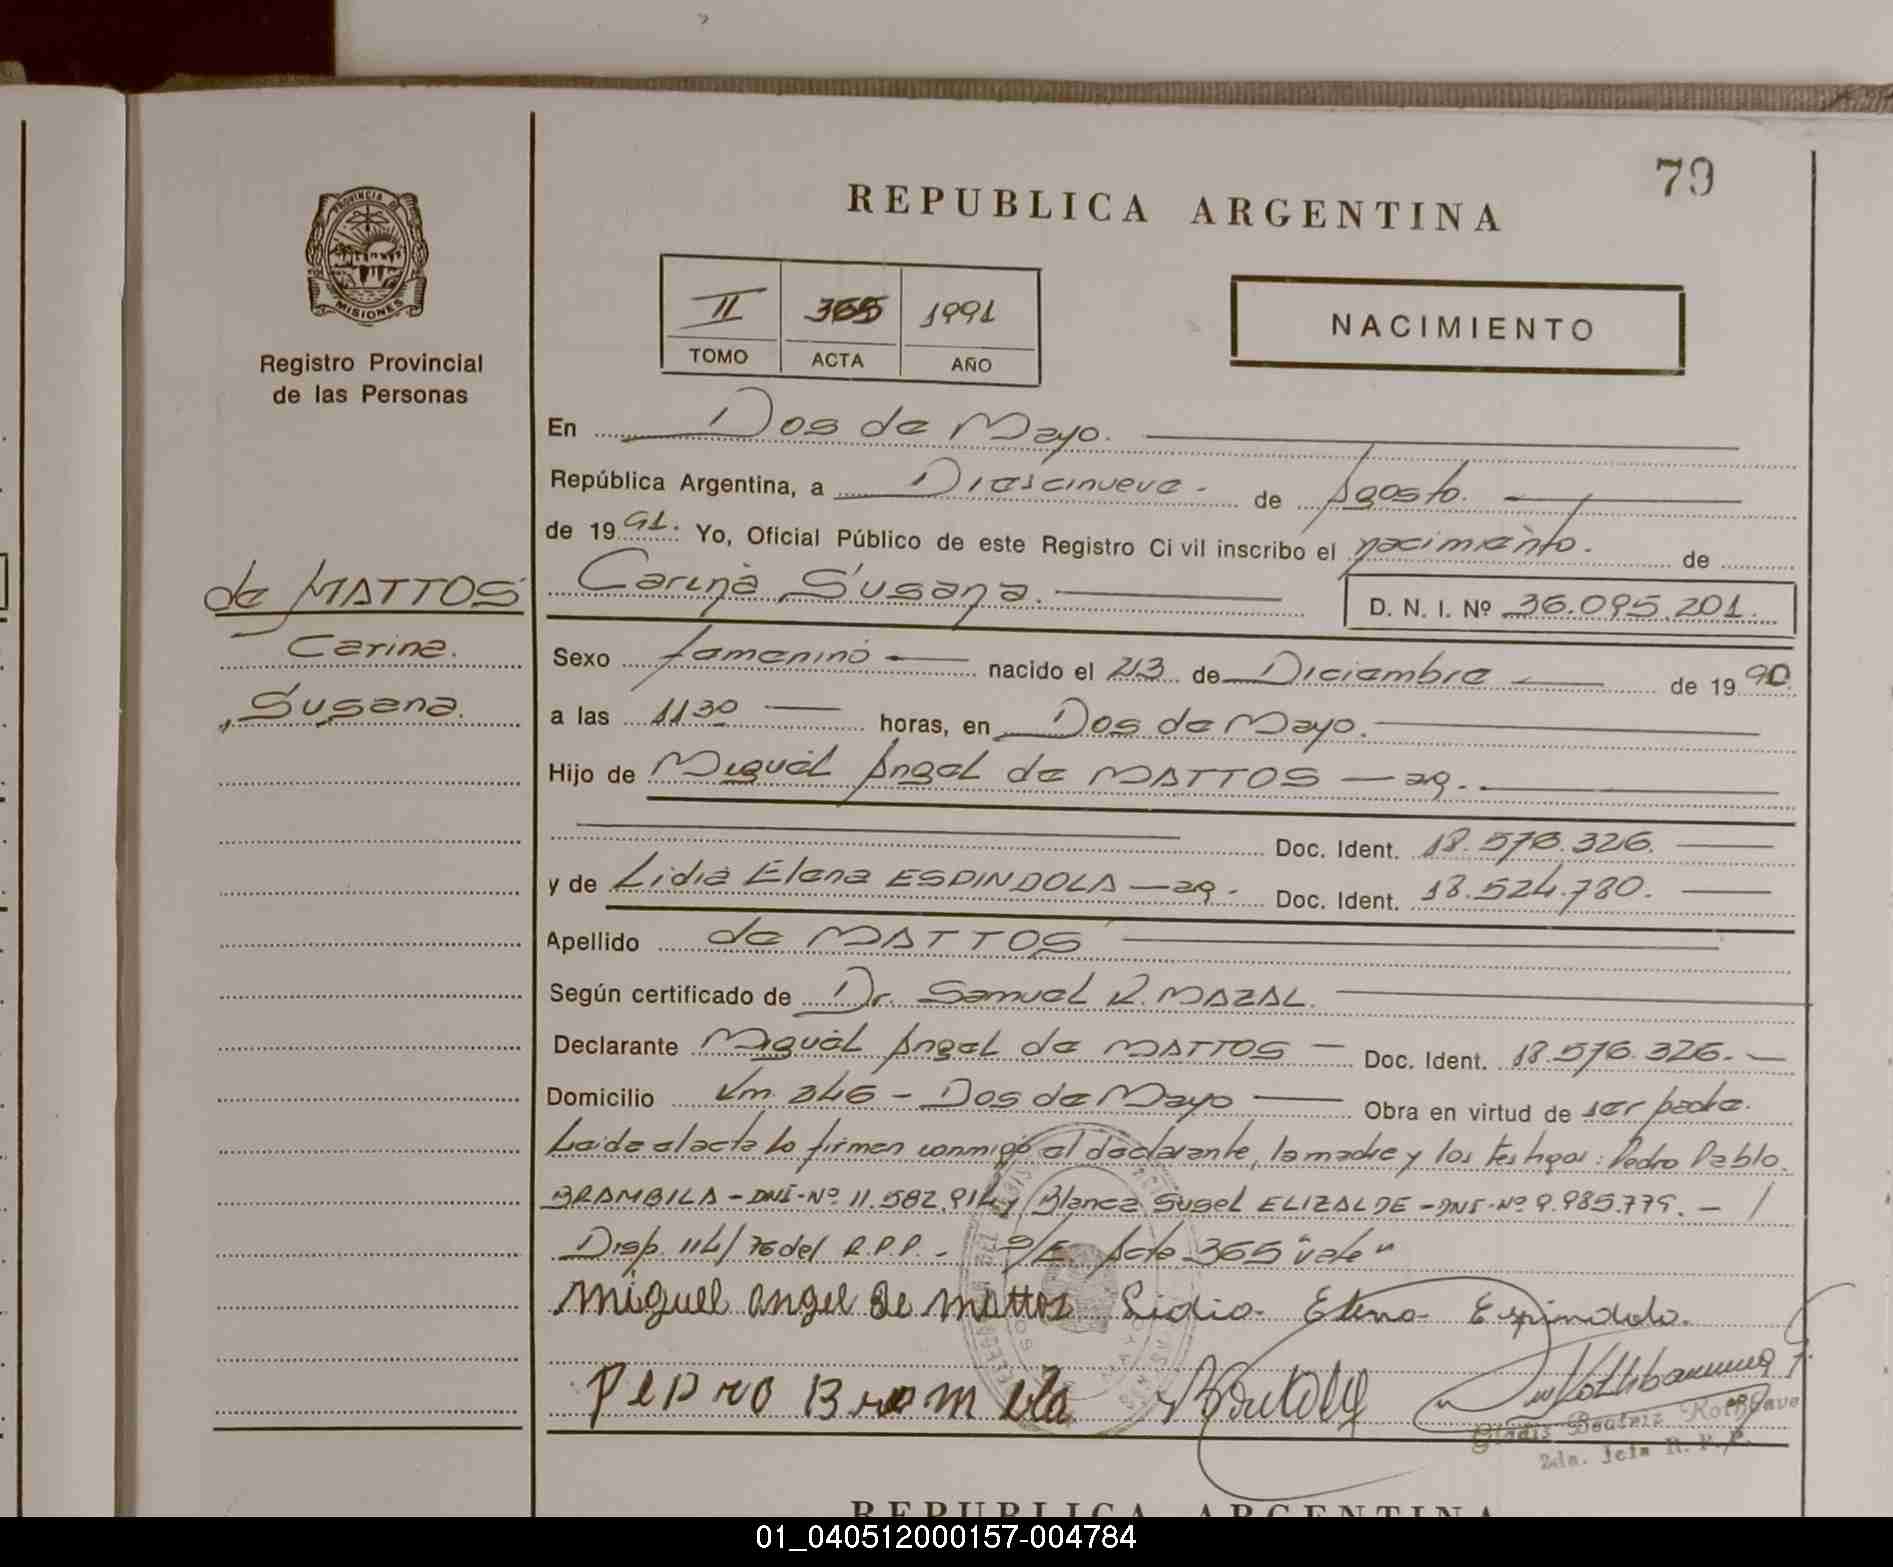 79
REPUBLICA ARGENTINA
PROVINCIA DE
MISIONES
Registro Provincial
de las Personas
II 365 1991
TOMO ACTA AÑO
NACIMIENTO
En Dos de Mayo.
República Argentina, a Diescinueve. de Agosto.
de 1991. Yo, Oficial Público de este Registro Civil inscribo el nacimiento. de
Carina Susana. D. N. I. Nº 36.095.201.
de MATTOS
Carina.
Susana.
Sexo femenino nacido el 23 de Diciembre de 1990.
a las 11 30 horas, en Dos de Mayo.
Hijo de Miguel Angel de MATTOS — ag.
Doc. Ident. 18.576.326.
y de Lidia Elena ESPINDOLA — ag. Doc. Ident. 18.524.780.
Apellido de MATTOS
Según certificado de Dr. Samuel R. MAZAL.
Declarante Miguel Angel de MATTOS — Doc. Ident. 18.576.326. —
Domicilio Km. 246 - Dos de Mayo Obra en virtud de ser padre.
Leida el acta lo firman conmigo el declarante, la madre y los testigos: Pedro Pablo
BRAMBILA - DNI - Nº 11.582.914 y Blanca Susel ELIZALDE - DNI - Nº 9.985.779. -
Disp. 114/76 del R.P.P. - S/E Acta 365 "vale"
Miguel angel de mattos Lidia Elena Espindola.
Pedro Brambila
Gladis Beatriz
2da. Jefa R. P. P.
REPUBLICA ARGENTINA
01_040512000157-004784